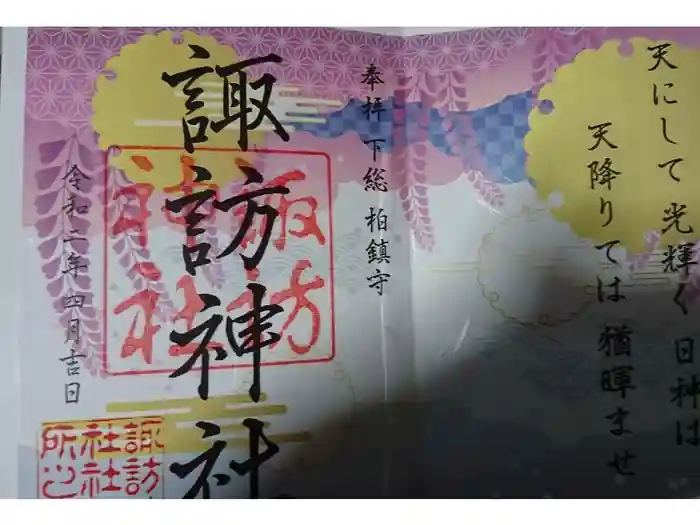 天にして 光輝く 日神は
天降りては 猶暉ませ
奉拝 下総 柏鎮守
諏訪神社
諏訪
神社
令和二年 四月吉日
諏訪
社社